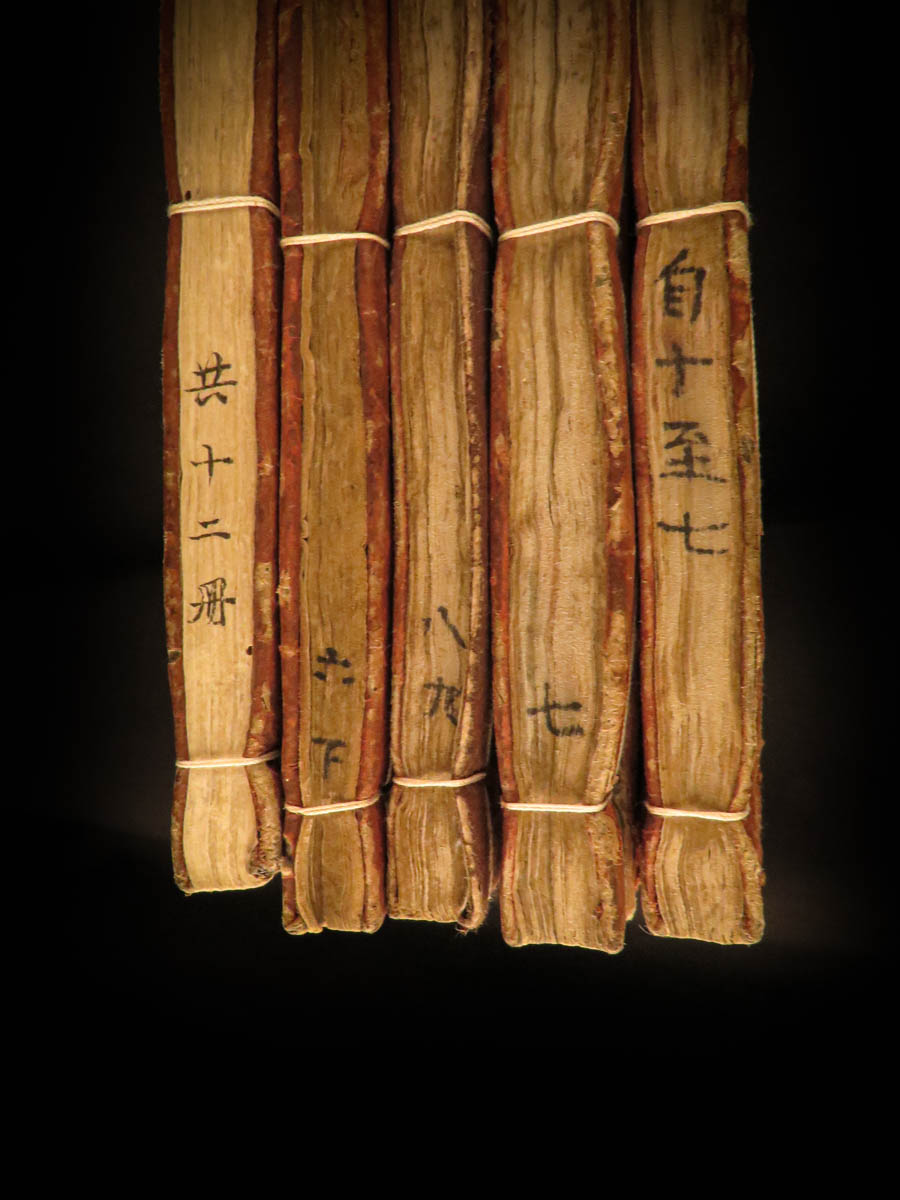 自十至七
七
八九
六下
共十二册